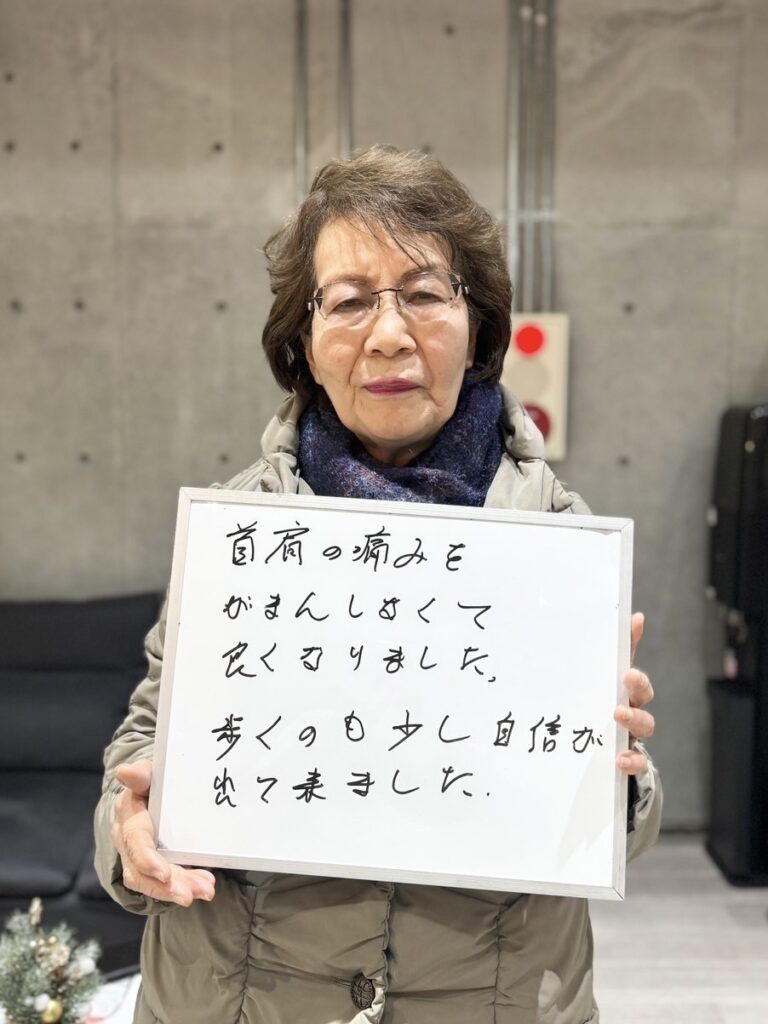 首肩の痛みを
がまんしなくて
良くなりました。
歩くのも少し自信が
出て来ました.